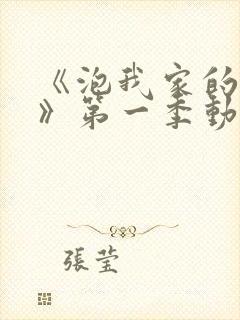 《泡我家的
》第一季動
張莹